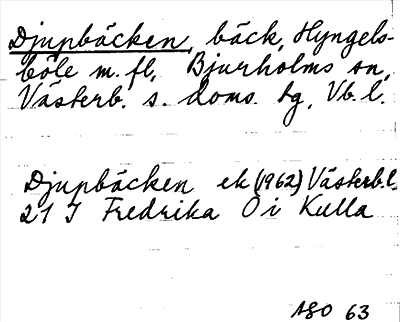 Djupbäcken, bäck, Hyngels-
böle m. fl., Bjurholms sn,
Västerb. s. doms. tg, Vb. l.
Djupbäcken ek (1962) Västerb. l.
21 J Fredrika Ö i Kulla
ASO 63